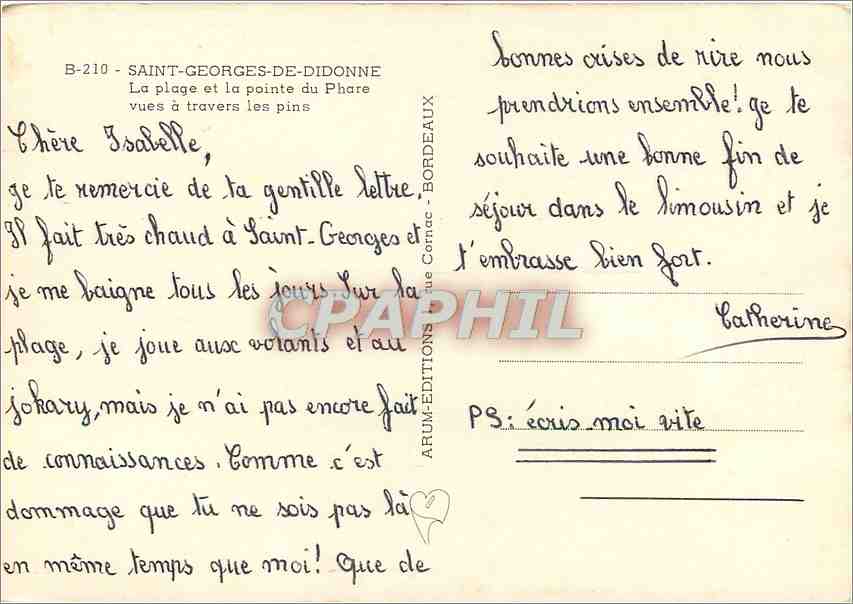 B-210 - SAINT-GEORGES-DE-DIDONNE
La plage et la pointe du Phare
vues à travers les pins
Chère Isabelle,
je te remercie de ta gentille lettre.
Il fait très chaud à Saint-Georges et
je me baigne tous les jours. Sur la
plage, je joue aux volants et au
jokary, mais je n'ai pas encore fait
de connaissances. Comme c'est
dommage que tu ne sois pas là
en même temps que moi! Que de
ARUM-EDITIONS rue Cornac - BORDEAUX
bonnes crises de rire nous
prendrions ensemble! je te
souhaite une bonne fin de
séjour dans le limousin et je
t'embrasse bien fort.
Catherine
PS: écris-moi vite
CPAPHIL